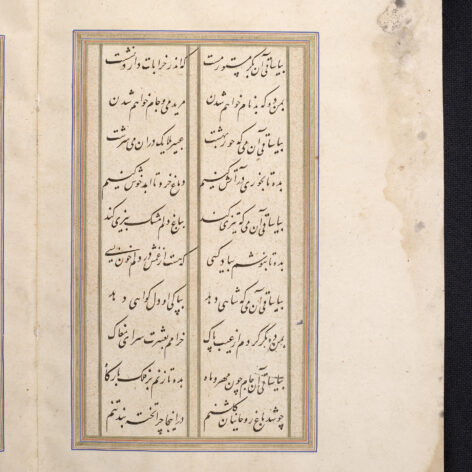 بیا ساقی آن بکر مستور مست کاندر خرابات دارد نشست
بمن ده که بدنام خواهم شدن مرید می و جام خواهم شدن
بیا ساقی آن می که حور بهشت عبیر ملایک در آن می سرشت
بده تا بخوری در آتش کنیم دماغ خرد تا ابد خوش کنیم
بیا ساقی آن می که تیزی کند بباغ دلم مشک بیزی کند
بده تا بنوشم بیاد کسی که هست از غمش در دلم خون بسی
بیا ساقی آن می که شاهی دهد بپاکی او دل گواهی دهد
بمن ده مگر گردم از عیب پاک خرامم بعشرت سرای
بیا ساقی آن جام چون مهر و ماه بده تا زنم بر فلک بارگاه
چو شد باغ روحانیان گلشنم در اینجا چرا تخته بند تنم